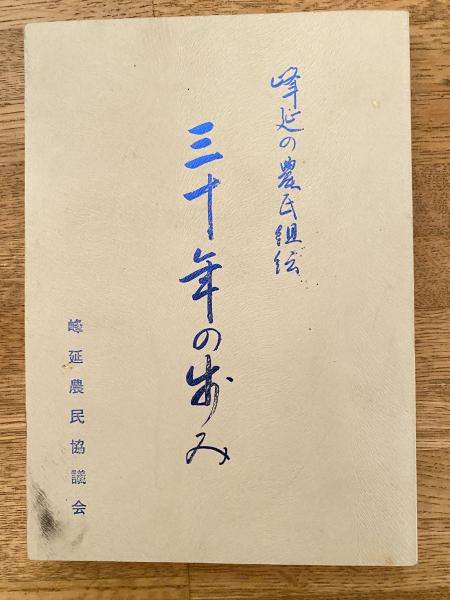 峰延の農民組伝
三十年の歩み
峰延農民協議会